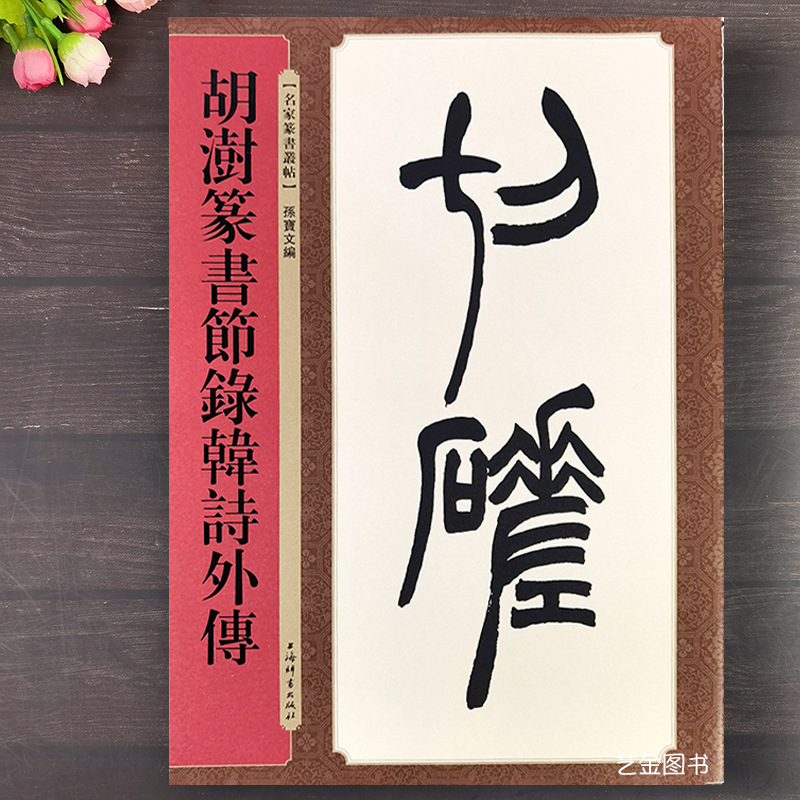 胡澍篆書節錄韓詩外傳
【名家篆書叢帖】 孫寶文編
上海辞书出版社
切磋
艺金图书